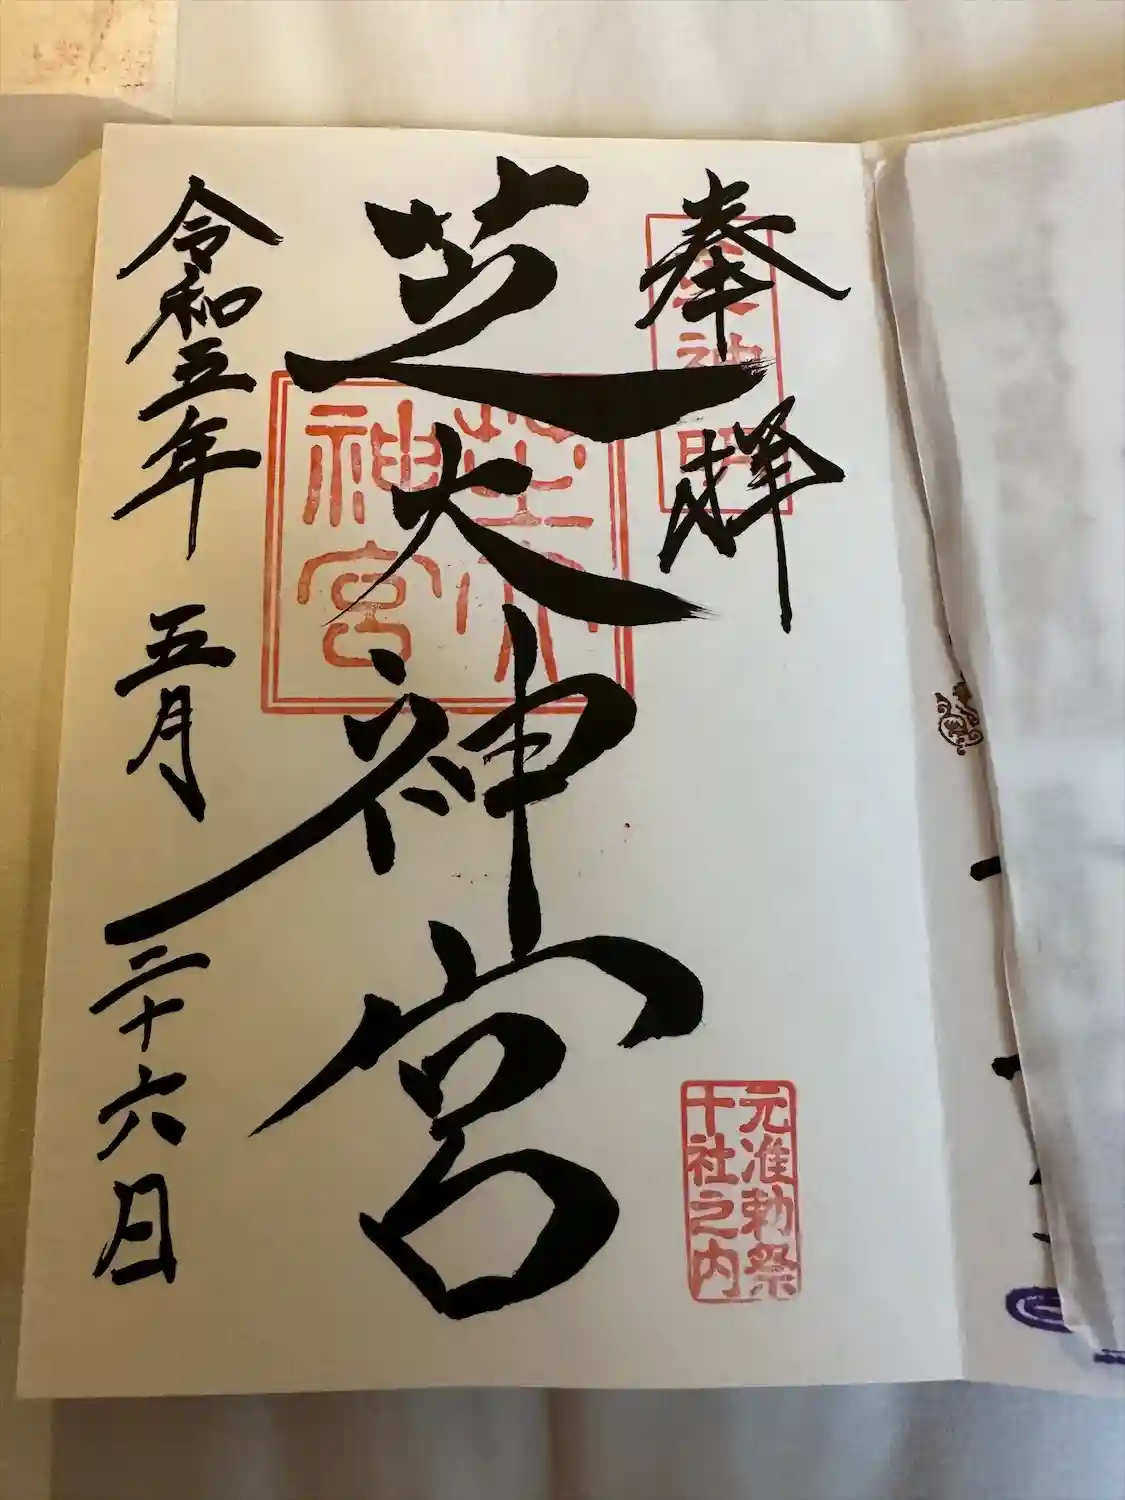 奉拝
神明
芝大神宮
芝大
神宮
元准勅祭
十社之内
令和五年 五月 二十六日